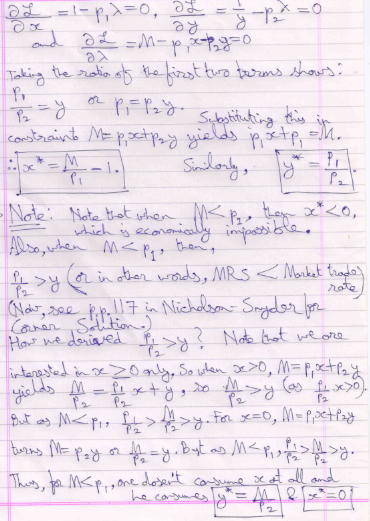 ∂ℒ/∂x = 1 - p₁λ = 0, ∂ℒ/∂y = 1/y - p₂λ = 0
and ∂ℒ/∂λ = M - p₁x - p₂y = 0
Taking the ratio of the first two terms shows:
p₁/p₂ = y or p₁ = p₂y.
Substituting this in
constraint M = p₁x + p₂y yields p₁x + p₁ = M.
∴ x* = M/p₁ - 1. Similarly, y* = p₁/p₂.
Note: Note that when M < p₁, then x* < 0,
which is economically impossible.
Also, when M < p₁, then,
p₁/p₂ > y (or in other words, MRS < Market trade
rate)
(Now, see p.p. 117 in Nicholson-Snyder for
Corner Solution.)
How we derived p₁/p₂ > y? Note that we are
interested in x > 0 only. So when x > 0, M = p₁x + p₂y
yields M/p₂ = p₁/p₂ x + y, so M/p₂ > y (as p₁/p₂ x > 0).
But as M < p₁, p₁/p₂ > M/p₂ > y. For x = 0, M = p₁x + p₂y
turns M = p₂y or M/p₂ = y. But as M < p₁, p₁/p₂ > M/p₂ > y.
Thus, for M < p₁, one dosen't consume x at all and
he consumes y* = M/p₂ & x* = 0